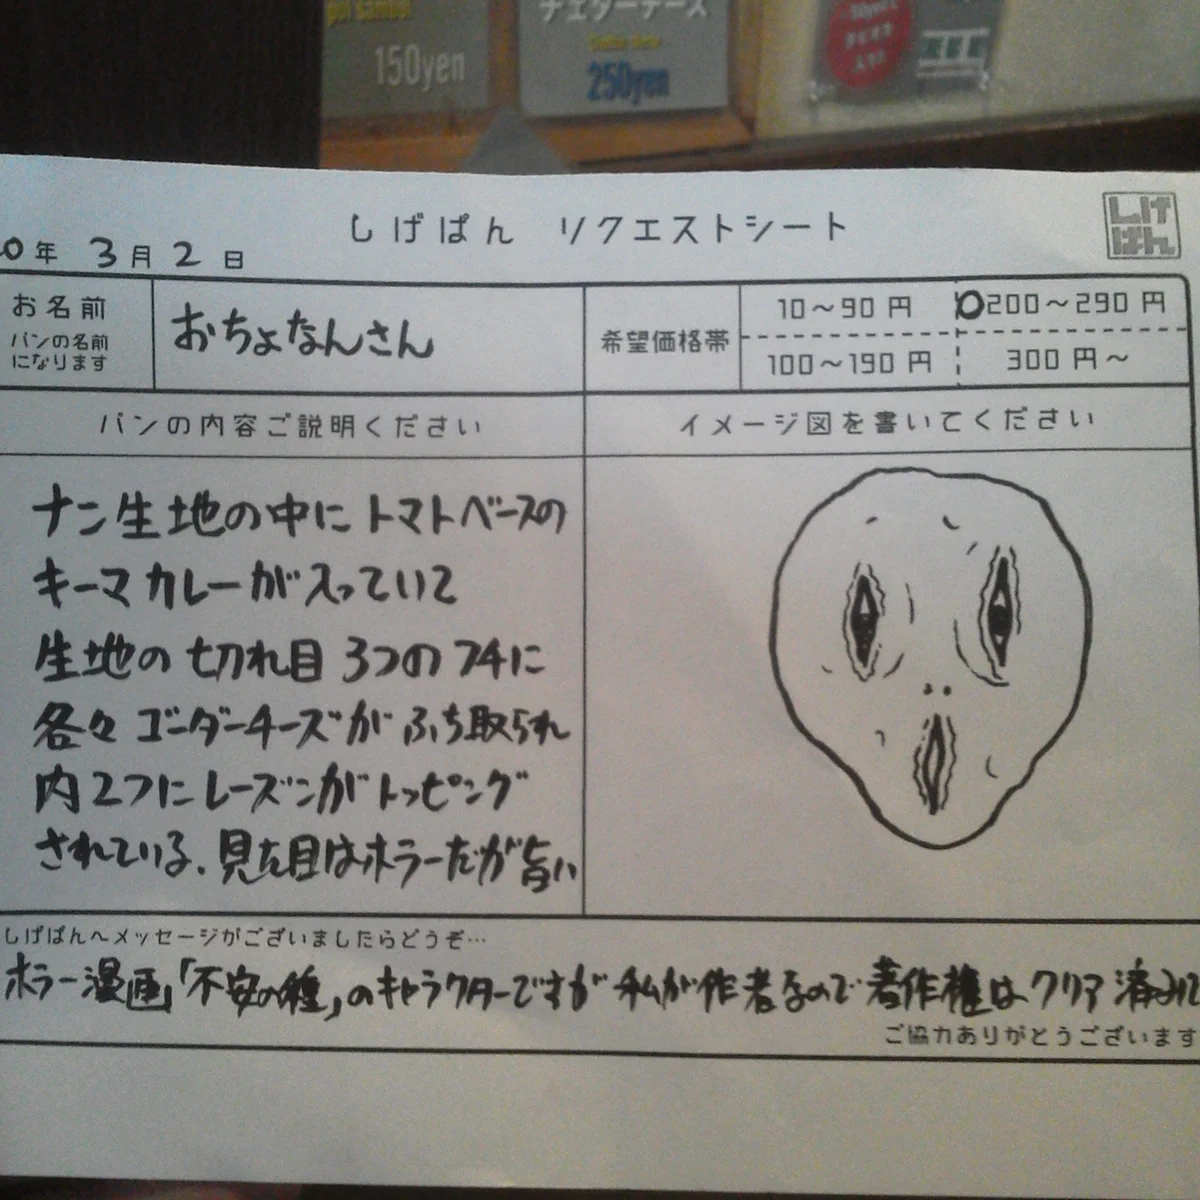 150yen
チェダーチーズ
250yen
しげぱん リクエストシート
しげ
ぱん
0年 3月 2日
お名前
パンの名前
になります
おちょなんさん
希望価格帯
10～90 円
200～290 円
100～190 円
300 円～
パンの内容ご説明ください
イメージ図を書いてください
ナン生地の中にトマトベースの
キーマカレーが入っていて
生地の切れ目3つのフチに
各々ゴーダーチーズがふち取られ
内2つにレーズンがトッピング
されている。見た目はホラーだが旨い
しげぱんへメッセージがございましたらどうぞ…
ホラー漫画「不安の種」のキャラクターですが私が作者なので著作権はクリア済みで
ご協力ありがとうございます